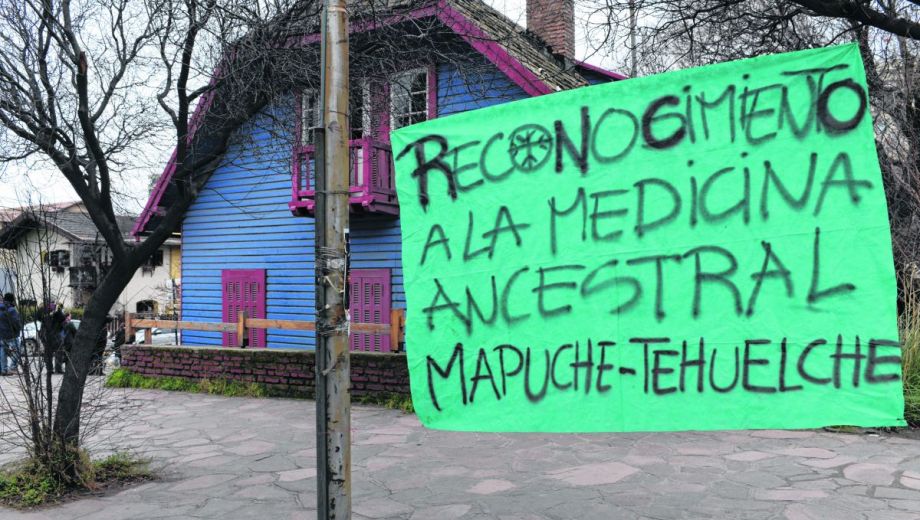 RECONOCIMIENTO
A LA MEDICINA
ANCESTRAL
MAPUCHE-TEHUELCHE